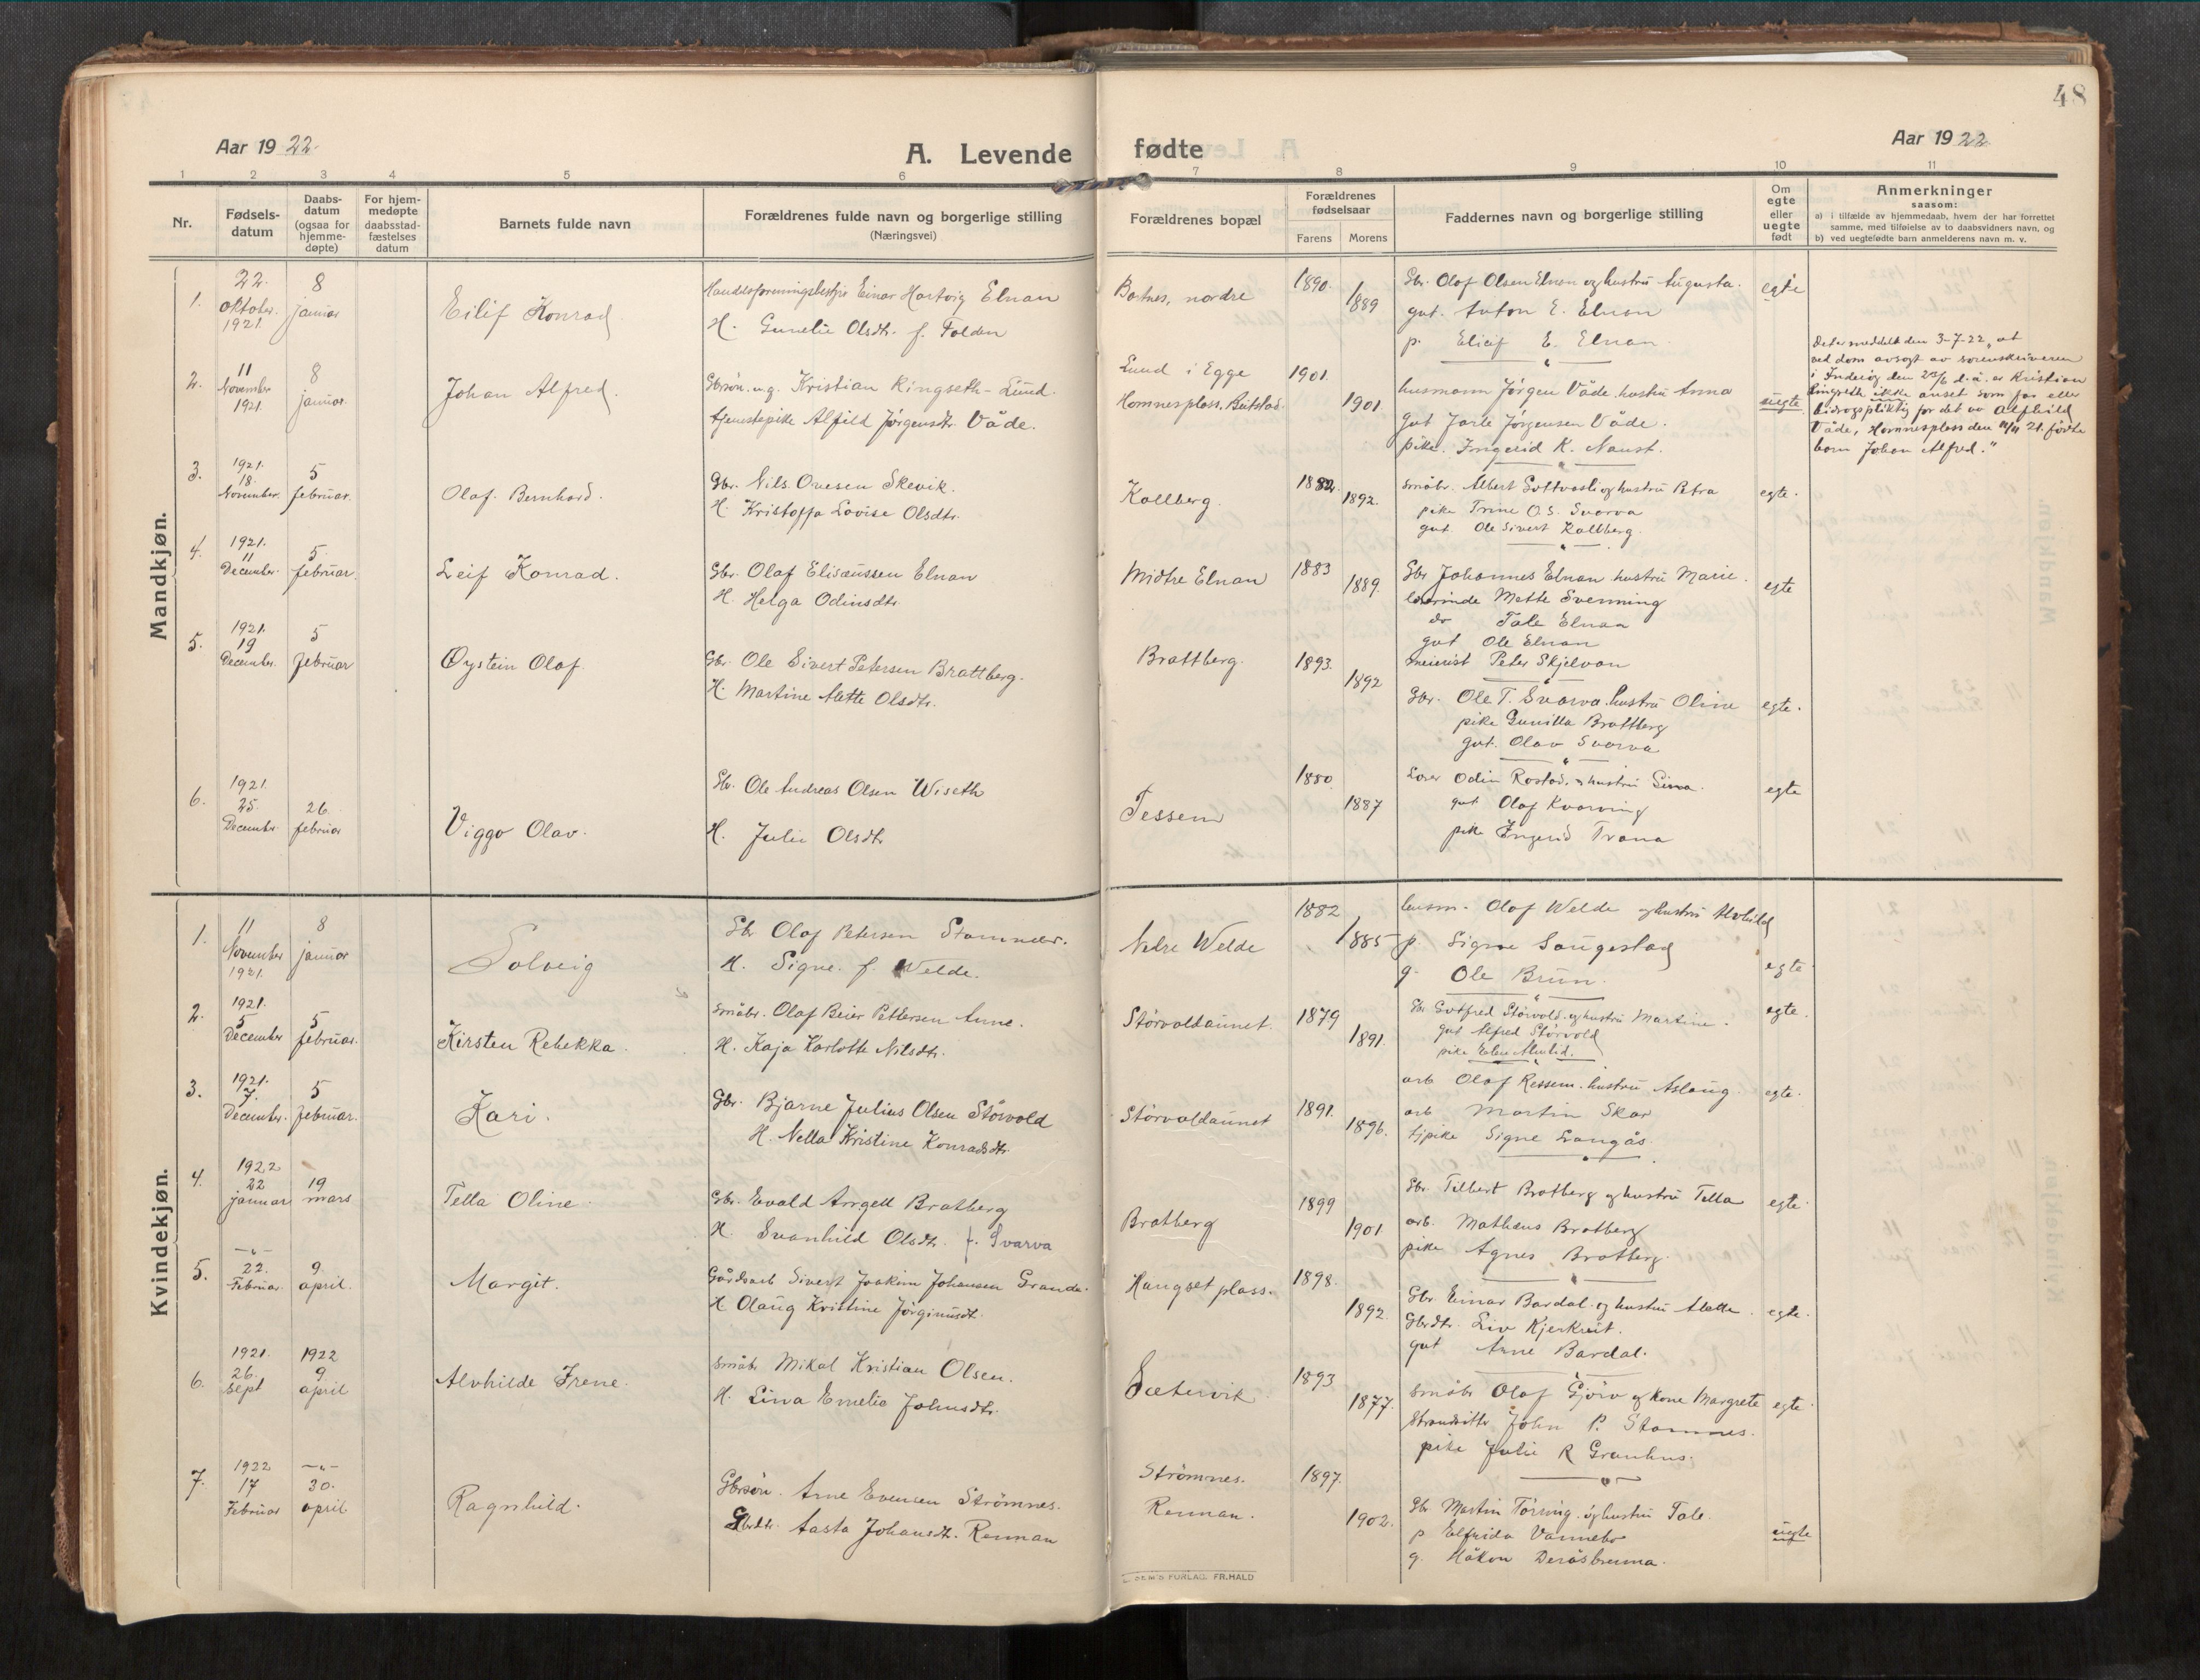 48
Aar 1922.
A. Levende
fødte
Aar 1922
1 2 3 4 5 6 7 8 9 10 11
Nr.
Fødsels-
datum
Daabs-
datum
(ogsaa for
hjemme-
døpte)
For hjem-
medøpte
daabsstad-
fæstelses
datum
Barnets fulde navn
Forældrenes fulde navn og borgerlige stilling
(Næringsvei)
Forældrenes bopæl
Forældrenes
fødselsaar
Farens Morens
Faddernes navn og borgerlige stilling
Om
egte
eller
uegte
født
Anmerkninger
saasom:
a) i tilfælde av hjemmedaab, hvem der har forrettet
samme, med tilføielse av to daabsvidners navn, og
b) ved uegtefødte barn anmelderens navn m. v.
Mandkjøn.
1.
22.
Oktober.
1921.
8
januar
Eilif Konrad.
Einar Hartvig Elnan
H. Gunelie Olsdtr. f. Folden
Bartnes, nordre
1890.
1889
Gbr. Olaf Olsen Elnan og hustru Augusta.
gut. Anton E. Elnan
p. E. Elnan
egte
2.
11
November
1921.
8
januar.
Johan Alfred.
Gbrsøn. u.g. Kristian Ringseth-Lund.
tjenestepike Alfild Jørgensdtr. Våde.
Lund i Egge
Homnesplass. Beitstad.
1901.
1901.
husmann Jørgen Våde. hustru Anna
gut Jarle Jørgensen Våde.
pike. Ingerid K. Naust.
uegte.
Det er meddelt den 3-7-22 „at
ved dom avsagt av sorenskriveren
i Inderøy den 23/6 d.å. er Kristian
Ringseth ikke anset som far eller
bidragspliktig for det av Alfhild
Våde, Homnesplass den 11/11 21. fødte
barn Johan Alfred."
3.
1921.
18.
November.
5
februar.
Olaf. Bernhard.
Gbr. Nils Ovesen Skevik.
H. Kristoffa Lovise Olsdtr.
Kallberg.
1882.
1892.
småbr. Albert Gottvasli og hustru Petra
pike Trine O.S. Svarva
gut. Ole Sivert Kallberg.
egte.
4.
1921.
11
December.
5
februar.
Leif Konrad.
Gbr. Olaf Elisæussen Elnan
H. Helga Odinsdtr.
Midtre Elnan
1883
1889.
Gbr Johannes Elnan hustru Marie.
lærerinde Mette Svenning
do Tale Elnan
gut Ole Elnan
meierist Peter Skjelvan
egte
5.
1921.
19
December.
5
februar
Øystein Olaf.
Gbr. Ole Sivert Petersen Brattberg.
H. Martine Alette Olsdtr.
Brattberg.
1893.
1892
Gbr. Ole T. Svarva. hustru Oline
pike Gunilla Brattberg
gut. Olav Svarva
egte.
6.
1921.
25.
December
26.
februar
Viggo Olav.
Gbr. Ole Andreas Olsen Wiseth
H. Julie Olsdtr
Tessem
1880.
1887
Lærer Odin Rostad. og hustru
gut Olaf Kvarving
pike Ingerid Trana
egte
Kvindekjøn.
1.
11
November
1921.
8
januar
Solveig
Gbr Olaf Petersen Stamnes.
H. Signe. f. Welde.
Nedre Welde
1882
1885
husm. Olaf Welde og hustru Alvhild
p. Signe Saugestad
g. Ole Brun.
egte
2.
1921.
5
December
5
februar.
Kirsten Rebekka.
småbr. Olaf Beier Pettersen Aune.
H. Kaja Karlotte Nilsdtr.
Størvoldaunet.
1879
1891.
Gbr Gotfred Størvold. og hustru Martine.
gut Alfred Størvold
pike
egte.
3.
1921.
7.
December.
5
februar.
Kari.
Gbr. Bjarne Julius Olsen Størvold
H. Nella Kristine Konradsdtr.
Størvoldaunet
1891.
1896.
arb Olaf Ressem. hustru Aslaug.
arb Martin Skar
tj.pike Signe Langås.
egte.
4.
1922
22
januar
19
mars
Tella Oline.
Gbr. Evald Arngell Bratberg
H. Svanhild Olsdtr. f. Svarva
Bratberg
1899
1901
Gbr. Tilbert Bratberg og hustru Tella
arb. Mathæus Bratberg
pike Agnes Bratberg.
egte.
5.
-"-
22.
Februar.
9.
april.
Margit.
Gårdsarb Sivert Joakim Johansen Grande.
H. Olaug Kristine Jørginusdt.
Haugset plass.
1898.
1892.
Gbr. Einar Bardal. og hustru Alette.
Gbrdtr. Liv Kjerkreit.
gut Arne Bardal.
egte.
6.
1921.
26.
Sept
1922
9
april
Alvhilde Irene.
småbr Mikal Kristian Olsen.
H. Lina Emelie Johnsdtr.
Sætervik.
1893
1877.
småbr Olaf Gjörv og kone Margrete
Strandsitter John P. Stamnes.
pike Julie R Granhus.
egte.
7.
1922
17
Februar
-"-
30.
april.
Ragnhild.
Gbrsøn. Arne Evensen Strömnes.
Gbrdtr. Aasta Johansdt. Rennan
Strömnes.
Rennan.
1897.
1902.
Gbr Martin Törring. og hustru Tale.
p. Elfrida Vannebo
g. Håkon
uegte
SEM'S FORLAG. FR.HALD